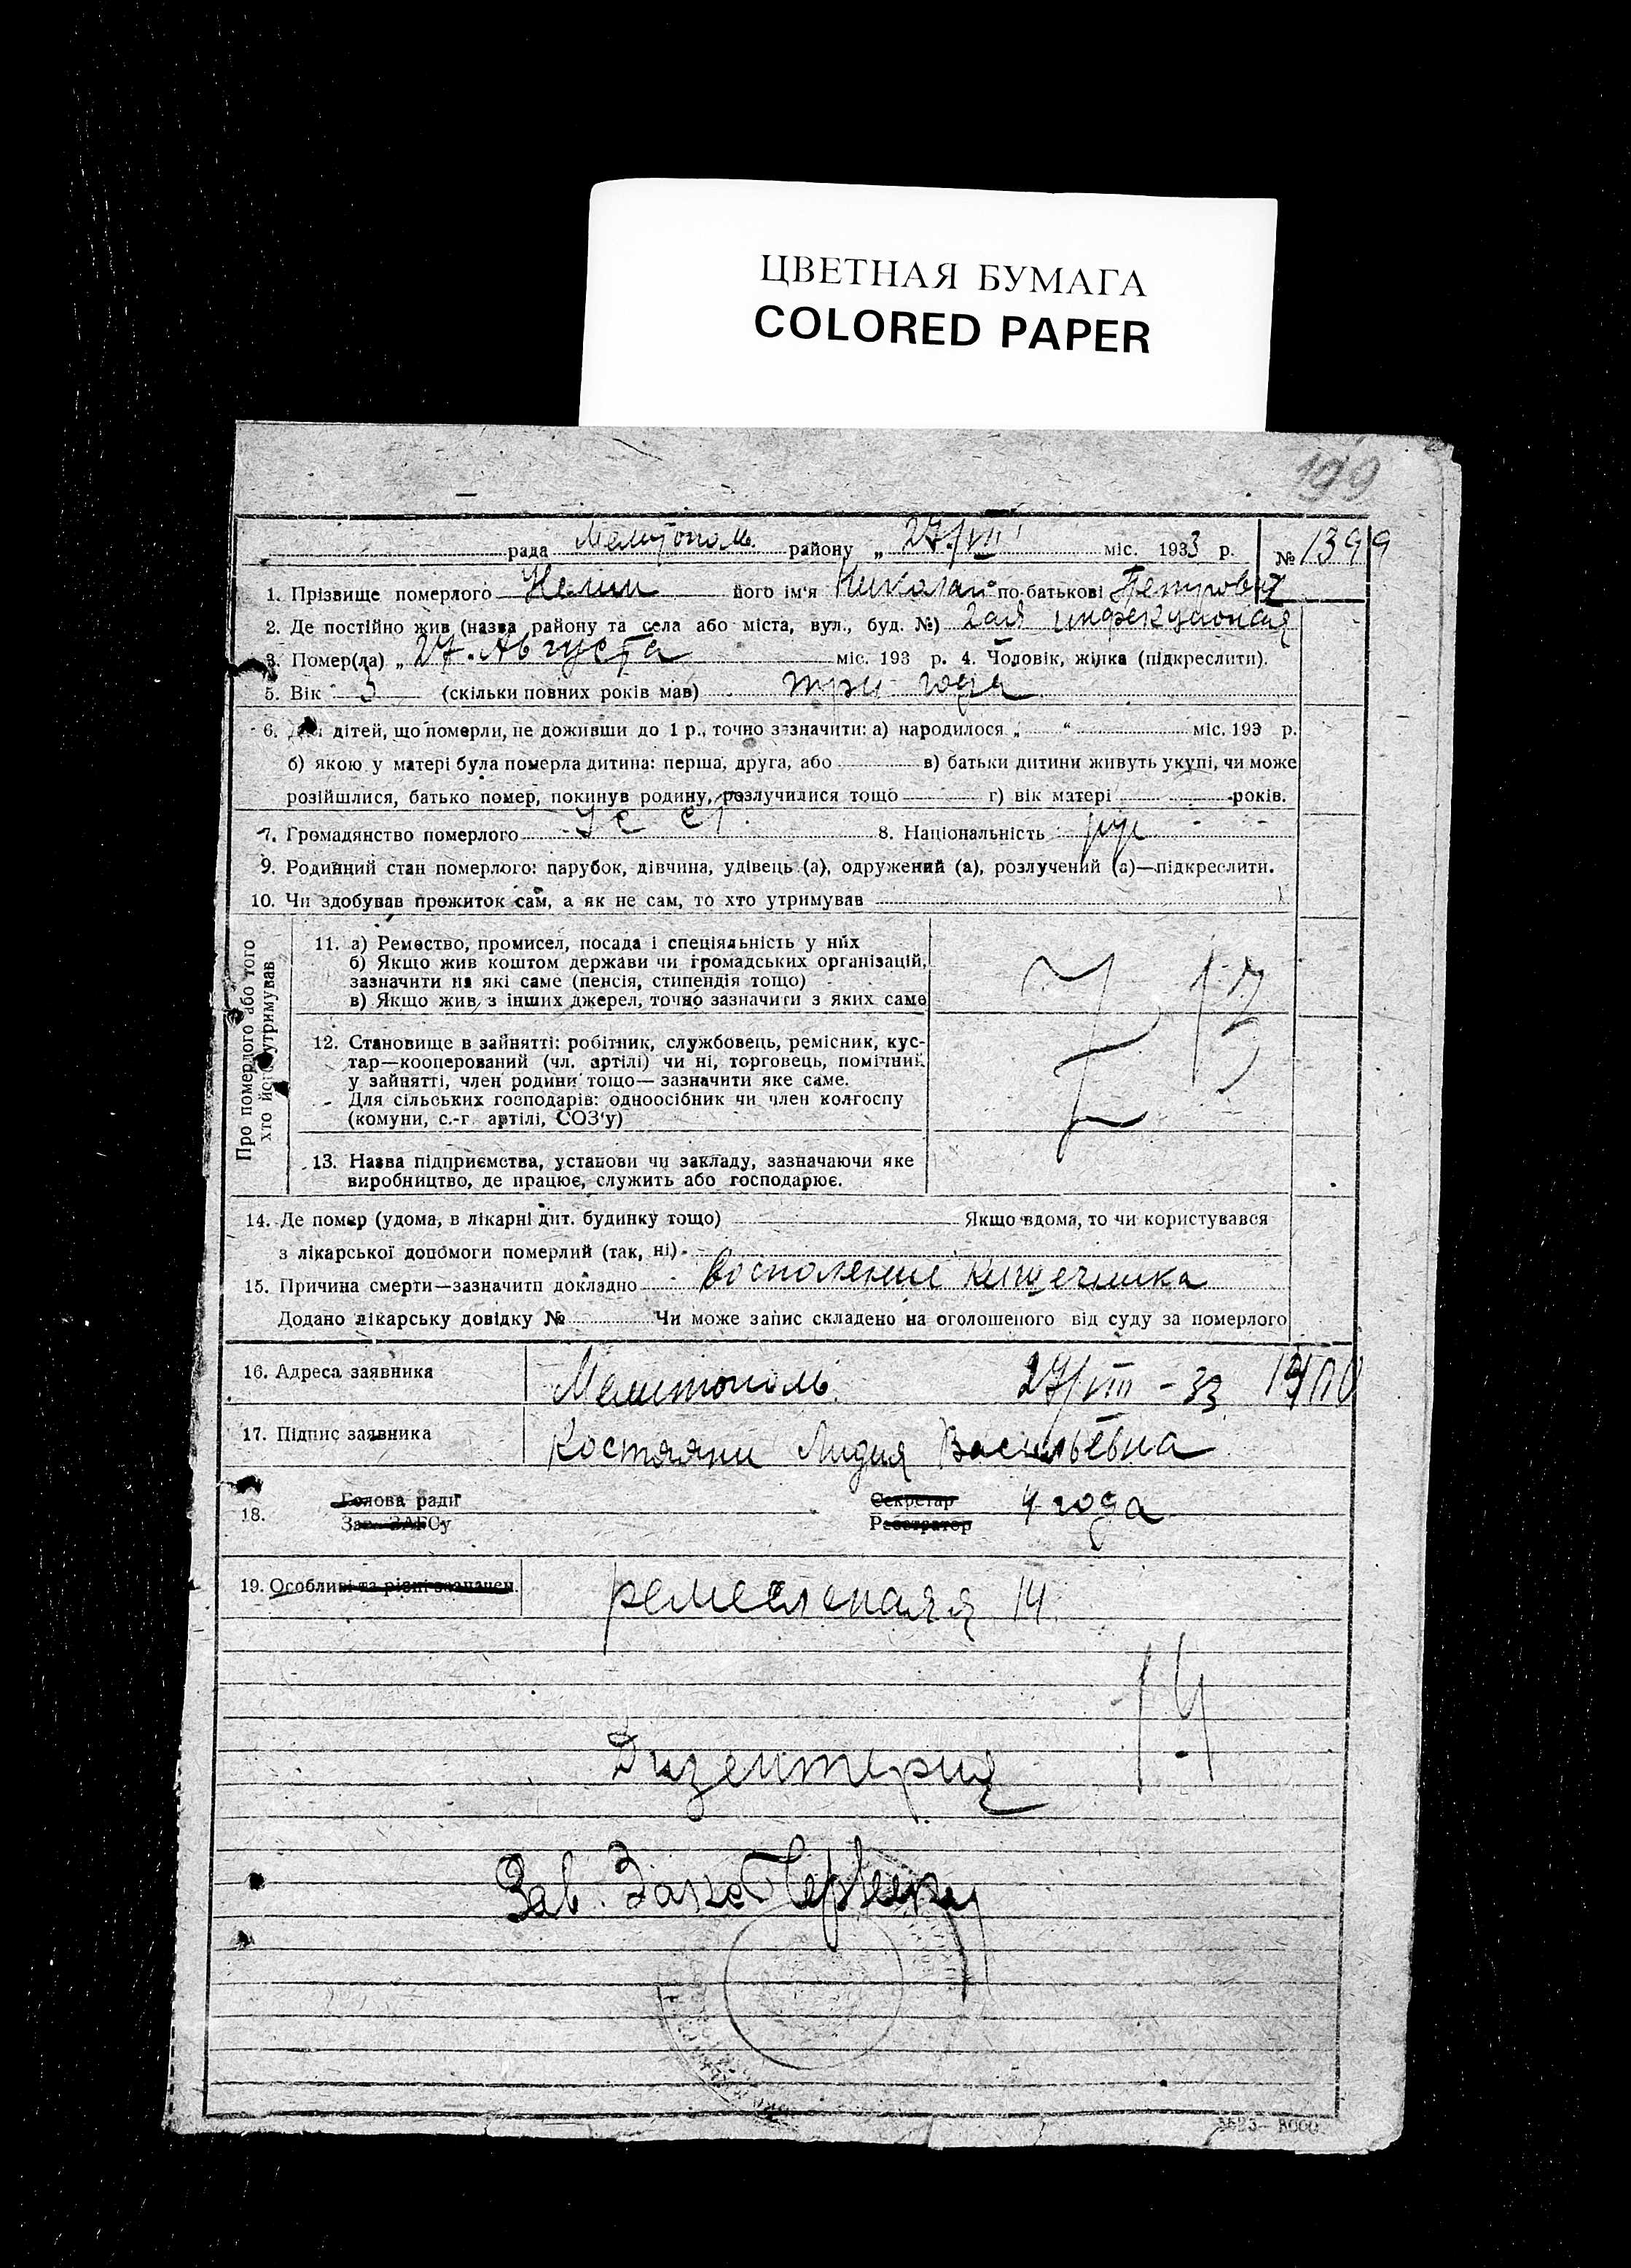 ЦВЕТНАЯ БУМАГА
COLORED PAPER
199
рада Мелитополь району „ 27/VIII міс. 1933 р. № 1399
1. Прізвище померлого Нелин його ім'я Николай по-батькові Петрович
2. Де постійно жив (назва району та села або міста, вул., буд. №) 2ая инфекционая
3. Помер(ла) „ 27. Августа міс. 193 р. 4. Чоловік, жінка (підкреслити).
5. Вік 3 (скільки повних років мав) три года
6. дітей, що померли, не доживши до 1 р., точно зазначити: а) народилося „ “ міс. 193 р.
б) якою у матері була померла дитина: перша, друга, або в) батьки дитини живуть укупі, чи може
розійшлися, батько помер, покинув родину, розлучилися тощо г) вік матері років.
7. Громадянство померлого 8. Національність рус
9. Родинний стан померлого: парубок, дівчина, удівець (а), одружений (а), розлучений (а)—підкреслити.
10. Чи здобував прожиток сам, а як не сам, то хто утримував
Про померлого або того
хто його утримував
11. а) Ремество, промисел, посада і спеціяльність у них
б) Якщо жив коштом держави чи громадських організацій,
зазначити на які саме (пенсія, стипендія тощо)
в) Якщо жив з інших джерел, точно зазначити з яких саме
12. Становище в зайнятті: робітник, службовець, ремісник, кус-
тар—кооперований (чл. артілі) чи ні, торговець, помічник
у зайнятті, член родини тощо— зазначити яке саме.
Для сільських господарів: одноосібник чи член колгоспу
(комуни, с.-г артілі, СОЗ'у)
13. Назва підприємства, установи чи закладу, зазначаючи яке
виробництво, де працює, служить або господарює.
14. Де помер (удома, в лікарні дит. будинку тощо) Якщо вдома, то чи користувався
з лікарської допомоги померлий (так, ні)
15. Причина смерти—зазначити докладно Восполение Кишечника
Додано лікарську довідку № Чи може запис складено на оголошеного від суду за померлого
16. Адреса заявника Мелитополь 27/VIII - 33
17. Підпис заявника Лидия Васильевна
18. Голова ради Секретар 4 года
Зав. ЗАГСу Реєстратор
19. Особливі та різні зазначен. ремесленая 14
14
Дизентерия
Зав. Загс
3623— 8000